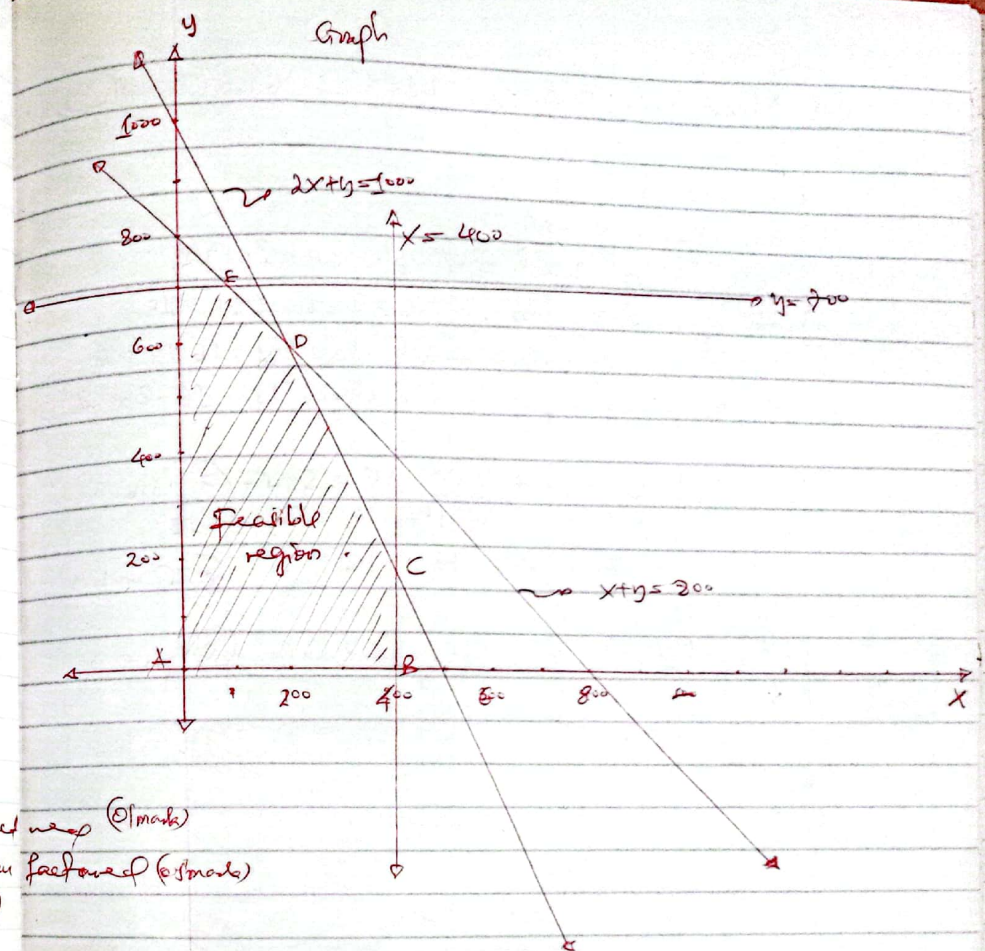 y
Graph
1000
2x+y=1000
800
x= 400
E
y= 700
600
D
400
Feasible
region.
200
C
x+y= 800
A
B
200
400
600
800
X
(01mark)
factured (0.5mark)